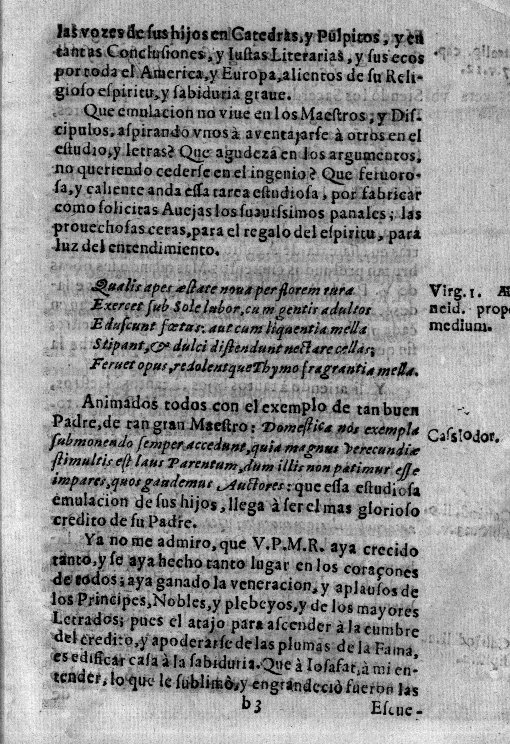 las vozes de sus hijos en Catedras, y Pulpitos, y en
tantas Conclusiones, y Iustas Literarias, y sus ecos
por toda el America, y Europa, alientos de su Reli-
gioso espiritu, y sabiduria graue.
Que emulacion no viue en los Maestros, y Dis-
cipulos, aspirando vnos à aventajarse à otros en el
estudio, y letras? Que agudeza en los argumentos,
no queriendo cederse en el ingenio? Que feruoro-
sa, y caliente anda essa tarea estudiosa, por fabricar
como solicitas Auejas los suauissimos panales; las
prouechosas ceras, para el regalo del espiritu, para
luz del entendimiento.
Qualis apes æstate noua per florem rura
Exercet sub Sole labor, cum gentis adultos
Educunt fœtus: aut cum liquentia mella
Stipant, & dulci distendunt nectare cellas;
Feruet opus, redolentque Thymo fragrantia mella.
Virg. 1. Æ
neid. prope
medium.
Animados todos con el exemplo de tan buen
Padre, de tan gran Maestro: Domestica nos exempla
submonendo semper accedunt, quia magnus verecundiæ
stimulus est laus Parentum, dum illis non patimur esse
impares, quos gaudemus Auctores: que essa estudiosa
emulacion de sus hijos, llega à ser el mas glorioso
credito de su Padre.
Cassiodor.
Ya no me admiro, que V.P.M.R. aya crecido
tanto, y se aya hecho tanto lugar en los coraçones
de todos; aya ganado la veneracion, y aplausos de
los Principes, Nobles, y plebeyos, y de los mayores
Letrados; pues el atajo para ascender à la cumbre
del credito, y apoderarse de las plumas de la Fama,
es edificar casa à la sabiduria. Que à Iosafat, à mi en-
tender, lo que le sublimò, y engrandeciò fueron las
b3
Escue-